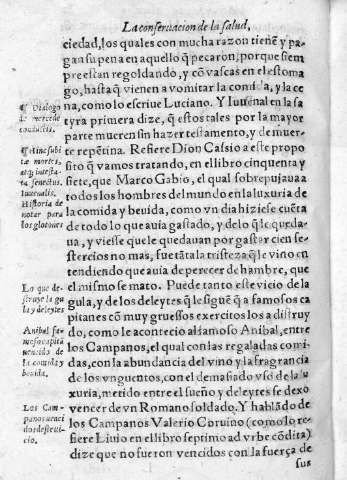 La conseruacion de la salud,
ciedad, los quales con mucha razon tienē y pa-
gan su pena en aquello q̄ pecaron, porque siem
pre estan regoldando, y cō vascas en el estoma
go, hasta q̄ vienen a vomitar la comida, y la ce
na, como lo escriue Luciano. Y Iuuenal en la sa
tyra primera dize, q̄ estos tales por la mayor
parte mueren sin hazer testamento, y de muer-
te repētina. Refiere Dion Cassio a este propo
sito q̄ vamos tratando, en el libro cinquenta y
siete, que Marco Gabio, el qual sobrepujaua a
todos los hombres del mundo en la luxuria de
la comida y beuida, como vn dia hiziese cuēta
de todo lo que auia gastado, y de lo q̄ le queda-
ua, y viesse que le quedauan por gastar cien se-
stercios no mas, fue tāta la tristeza q̄ le vino en
tendiendo que auia de perecer de hambre, que
el mismo se mato. Puede tanto este vicio de la
gula, y de los deleytes q̄ le siguē q̄ a famosos ca
pitanes cō muy gruessos exercitos los a distruy
do, como le acontecio al famoso Anibal, entre
los Campanos, el qual con las regaladas comi
das, con la abundancia del vino y la fragrancia
de los vnguentos, con el demasiado vso de la lu
xuria, metido entre el sueño y deleytes se dexo
vencer de vn Romano soldado. Y hablādo de
los Campanos Valerio Coruino (como lo re-
fiere Liuio en el libro septimo ad vrbe cōdita)
dize que no fueron vencidos con la fuerça de
sus
¶ Dialogo
de mercede
conductis.
¶ Hinc subi
tæ mortes,
atq; intesta-
ta senectus.
Iuuenalis.
Historia de
notar para
los glotones
Lo que de-
struye la gu
la y deleytes
Anibal fa-
moso capitā
uencido de
la comida y
beuida.
Los Cam-
panos uenci
dos destrui-
cio.